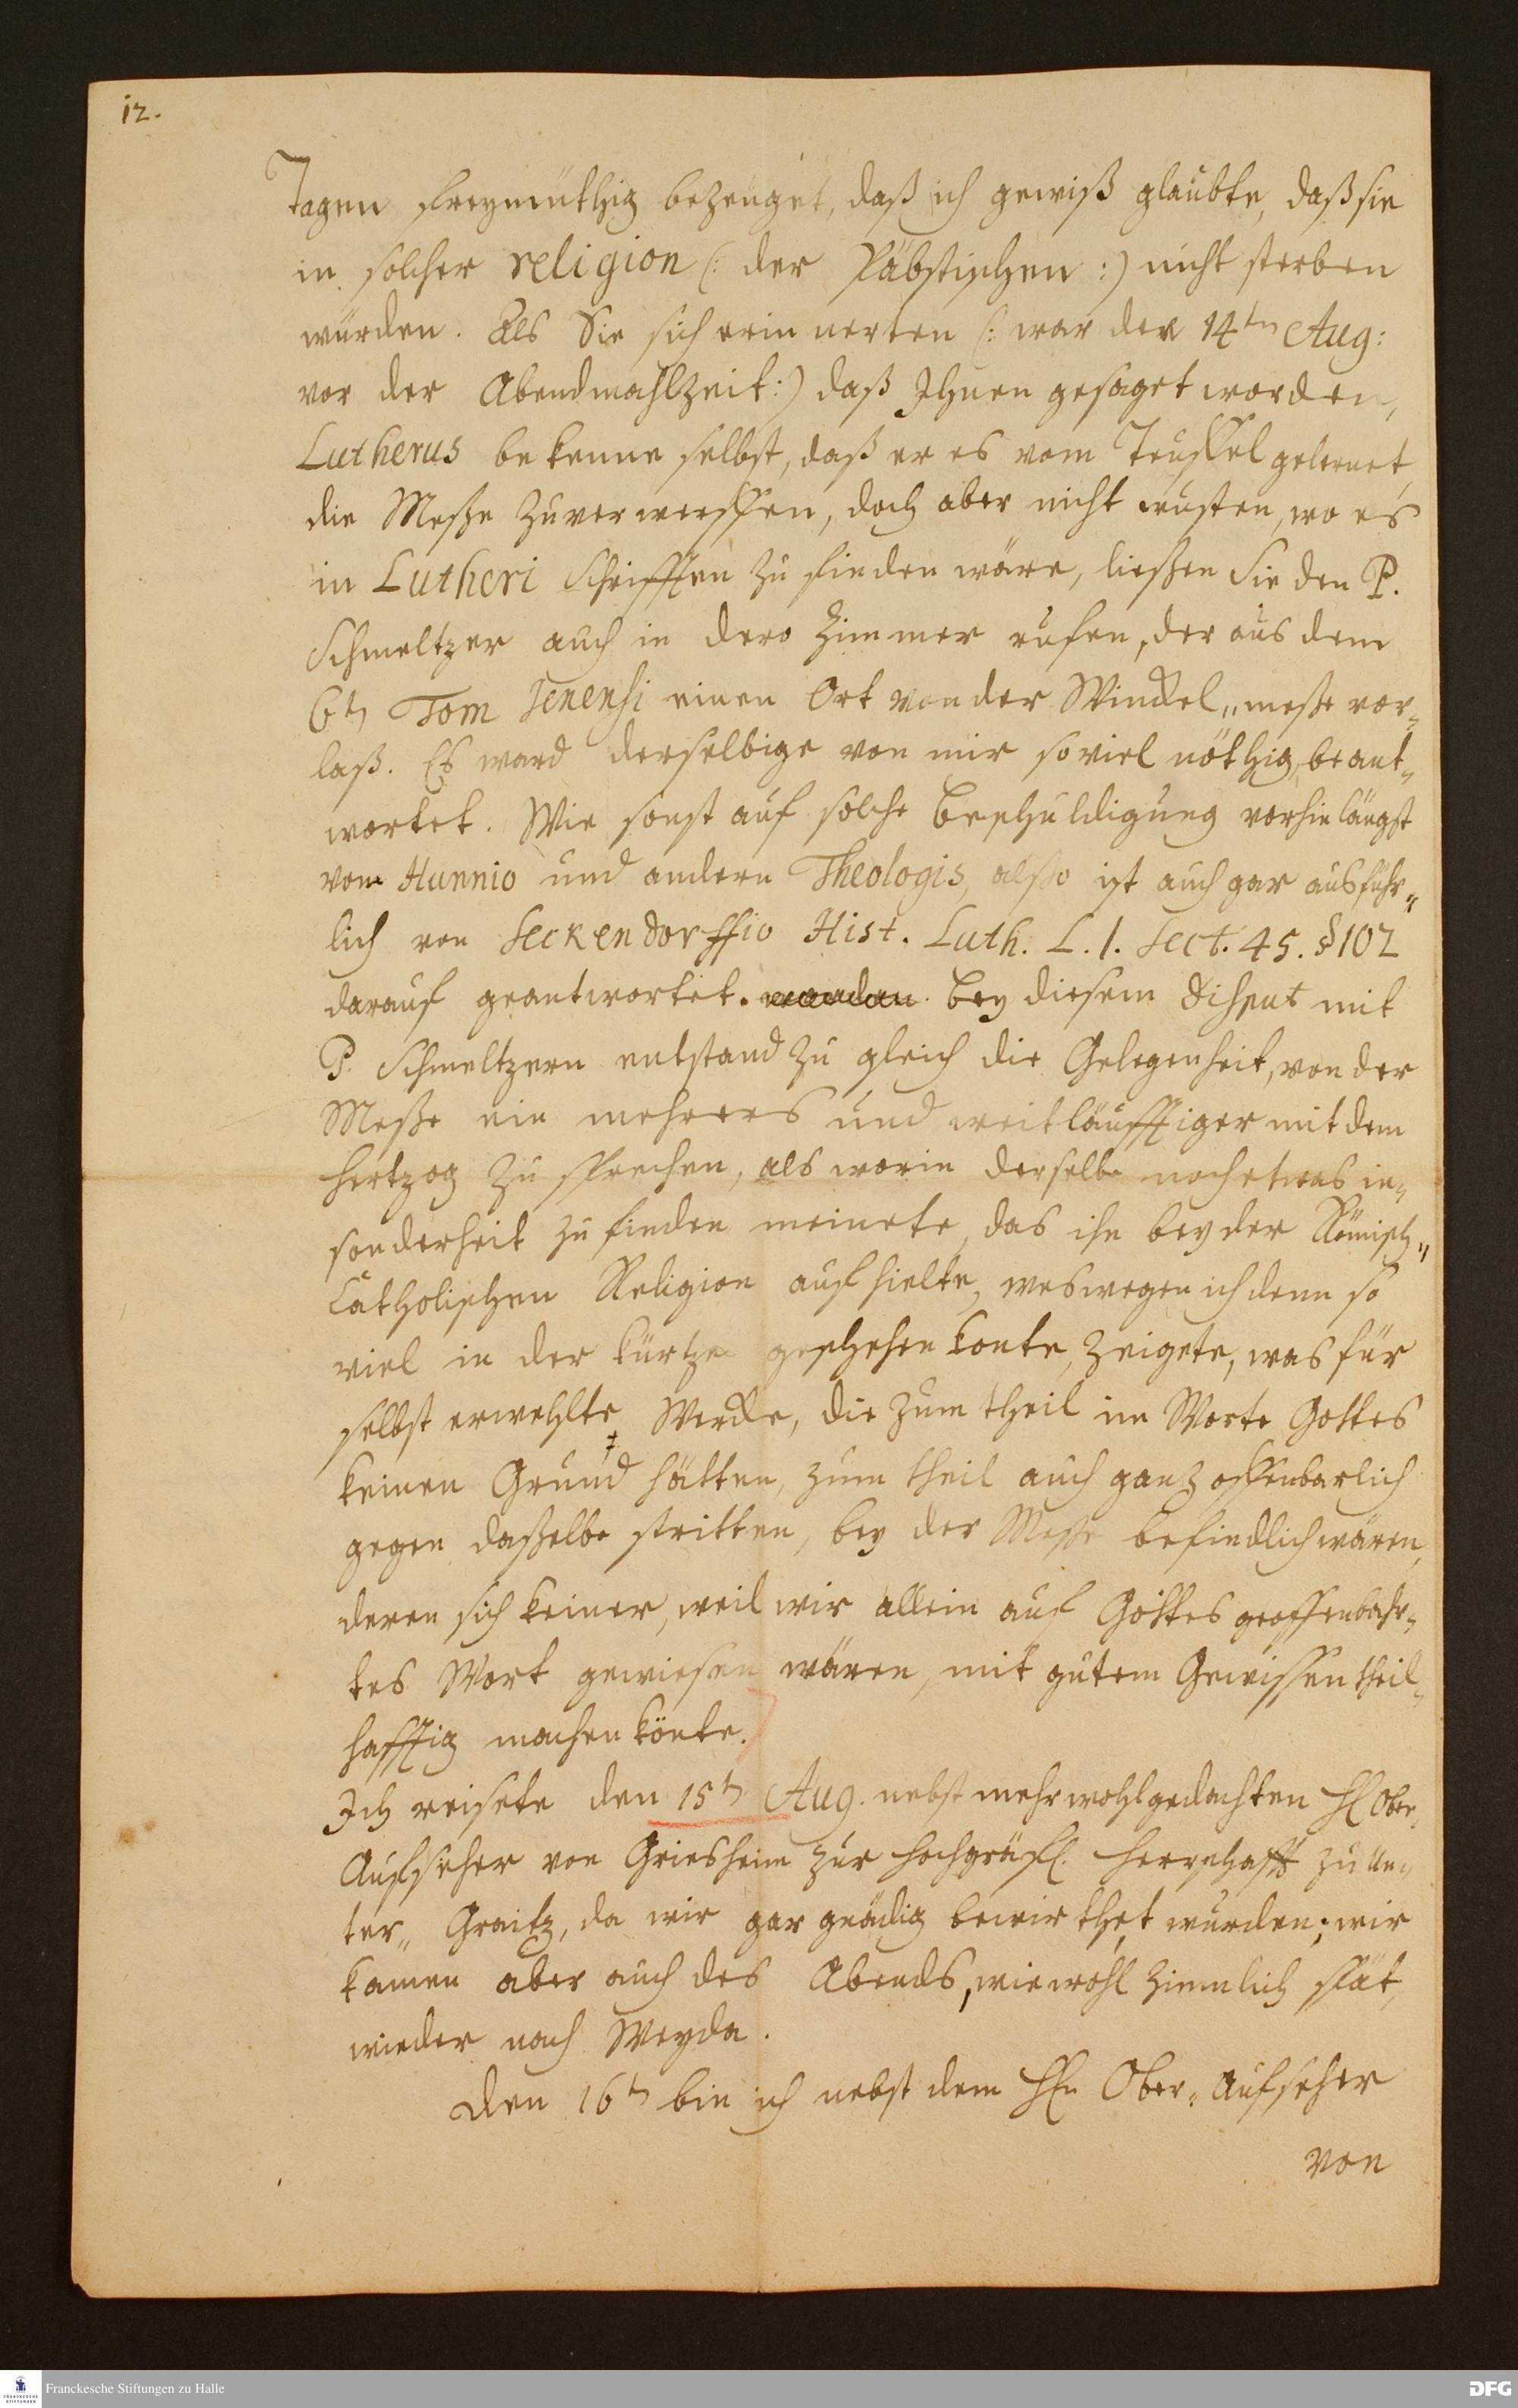 12.
Tagen freymüthig bezeuget, daß ich gewiß glaubte, daß sie
in solcher religion (: der Päbstischen :) nicht sterben
würden. Als Sie sich erinnerten (: war der 14ten Aug:
vor der Abendmahlzeit:) daß Ihnen gesaget worden,
Lutherus bekenne selbst, daß er es vom Teuffel gelernet,
die Meße zuverwerffen, doch aber nicht wusten, wo es
in Lutheri Schrifften zu finden wäre, ließen Sie den P.
Schmeltzer auch in dero Zimmer rufen, der aus dem
6tn Tom Jenensi einen Ort von der Winckel„meße vor„
laß. Es ward derselbige von mir soviel nöthig, beant„
wortet. Wie sonst auf solche Beschuldigung vorhin längst
von Hunnio und andern Theologis, alßo ist auch gar ausführ„
lich von Seckendorffio Hist. Luth. L. 1. Sect. 45. §102
darauf geantwortet. worden. Bey diesem Disput mit
P. Schmeltzern entstand zu gleich die Gelegenheit, von der
Meße ein mehrers und weitläufftiger mit dem
Hertzog zu sprechen, als worin derselbe noch etwas in„
sonderheit zu finden meinete, das ihn bey der Römisch„
Catholischen Religion aufhielte, weswegen ich denn so
viel in der kürtze geschehen konte, zeigete, was für
selbst erwehlte Wercke, die zum theil im Worte Gottes
keinen Grund hätten, zum theil auch ganz offenbarlich
gegen daßelbe stritten, bey der Meße befindlich wären,
deren sich keiner, weil wir allein auf Gottes geoffenbahr„
tes Wort gewiesen wären, mit gutem Gewissen theil„
hafftig machen könte.
Ich reisete den 15tn Aug. nebst mehrwohlgedachten H. Ober„
Aufseher von Griesheim zur Hochgräfl. Herrschafft zu Un„
ter„ Graitz, da wir gar gnädig bewirthet wurden; wir
kamen aber auch des Abends, wiewohl ziemlich spät,
wieder nach Weyda.
Den 16tn bin ich nebst dem Hn Ober„Aufseher
von
Franckesche Stiftungen zu Halle
FRANCKESCHE STIFTUNGEN
DFG